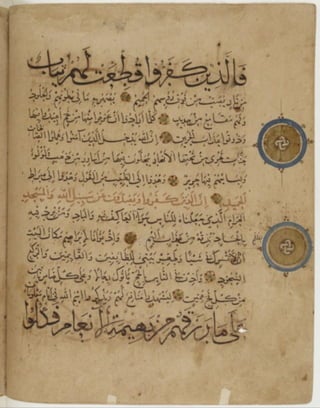 فالذين كفروا قطعت لهم ثياب
من نار يصب من فوق رءوسهم الحميم يصهر به ما في بطونهم والجلود
ولهم مقامع من حديد كلما أرادوا أن يخرجوا منها من غم أعيدوا فيها
وذوقوا عذاب الحريق إن الله يدخل الذين آمنوا وعملوا الصالحات
جنات تجري من تحتها الأنهار يحلون فيها من أساور من ذهب ولؤلؤا
ولباسهم فيها حرير وهدوا إلى الطيب من القول وهدوا إلى صراط
الحميد إن الذين كفروا ويصدون عن سبيل الله والمسجد
الحرام الذي جعلناه للناس سواء العاكف فيه والباد ومن يرد فيه
بإلحاد بظلم نذقه من عذاب أليم وإذ بوأنا لإبراهيم مكان البيت
أن لا تشرك بي شيئا وطهر بيتي للطائفين والقائمين والركع
السجود وأذن في الناس بالحج يأتوك رجالا وعلى كل ضامر يأتين
من كل فج عميق ليشهدوا منافع لهم ويذكروا اسم الله في أيام معلومات
على ما رزقهم من بهيمة الأنعام فكلوا